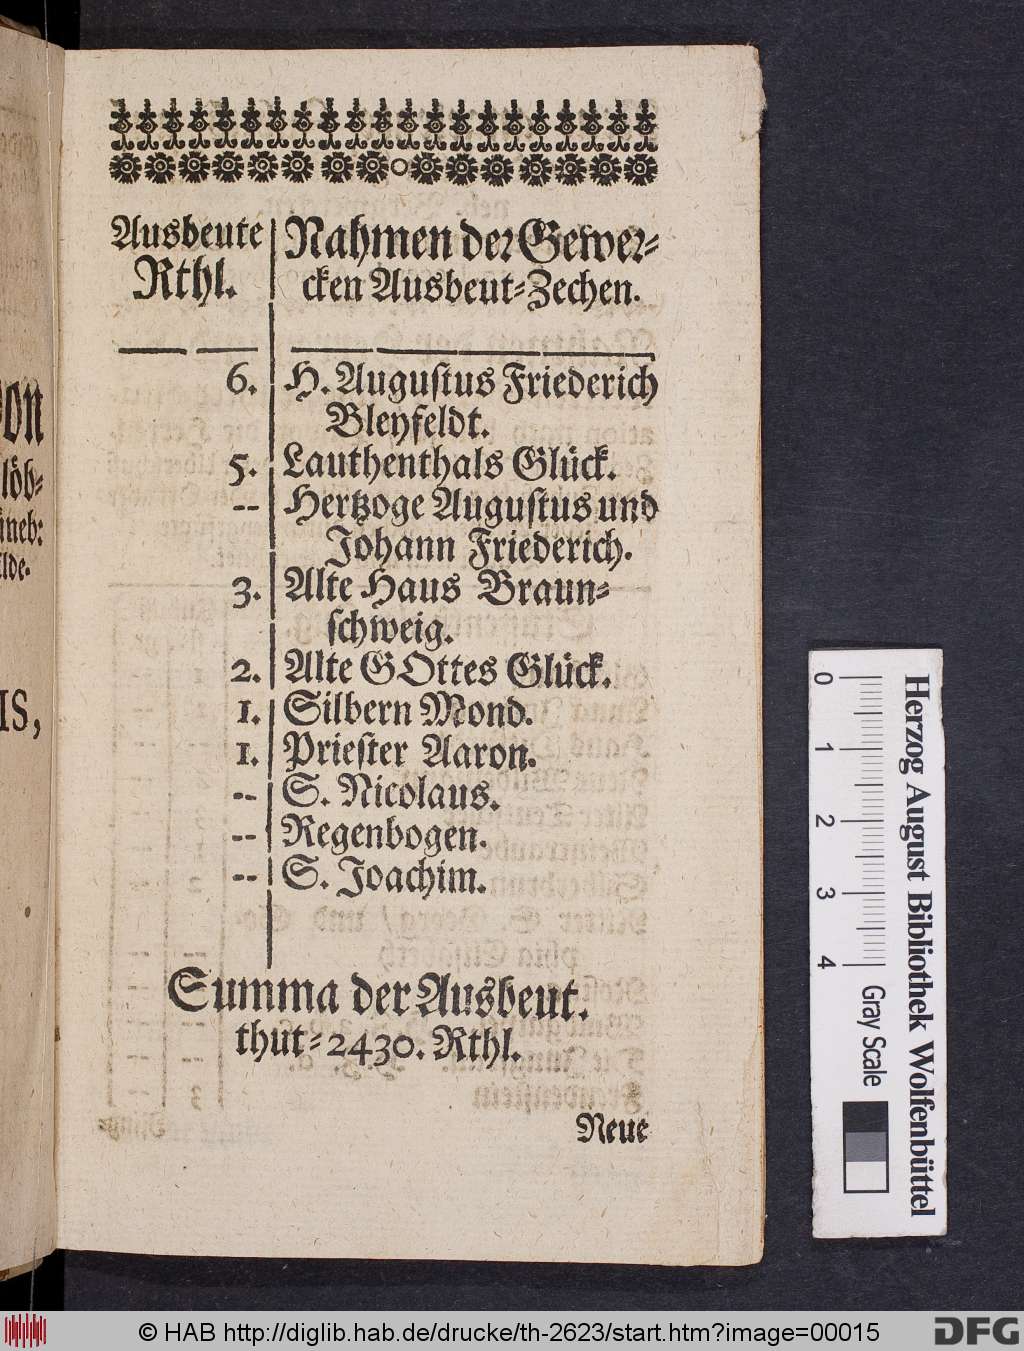 Ausbeute Rthl. | Nahmen der Gewer-
cken Ausbeut-Zechen.
6. H. Auguſtus Friederich
Bleyfeldt.
5. Lauthenthals Glück.
-- Hertzoge Auguſtus und
Johann Friederich.
3. Alte Haus Braun-
ſchweig.
2. Alte GOttes Glück.
1. Silbern Mond.
1. Prieſter Aaron.
-- S. Nicolaus.
-- Regenbogen.
-- S. Joachim.
Summa der Ausbeut.
thut-2430. Rthl.
Neue
on
löb-
üneb:
lde.
IS,
0 1 2 3 4
Herzog August Bibliothek Wolfenbüttel
Gray Scale
© HAB http://diglib.hab.de/drucke/th-2623/start.htm?image=00015
DFG